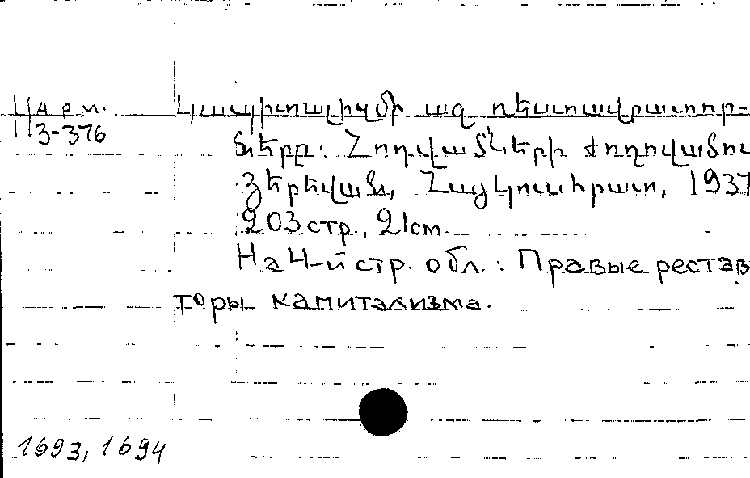 Арм.
3-376
Կապիտալիզմի աջ ռեստավրատոր-
ները: Հոդվածների ժողովածու
Յերեվան, Հայկուսհրատ, 1937
203 стр., 21 cm.
На 4-й стр. обл.: Правые рестав
торы капитализма.
1693, 1694